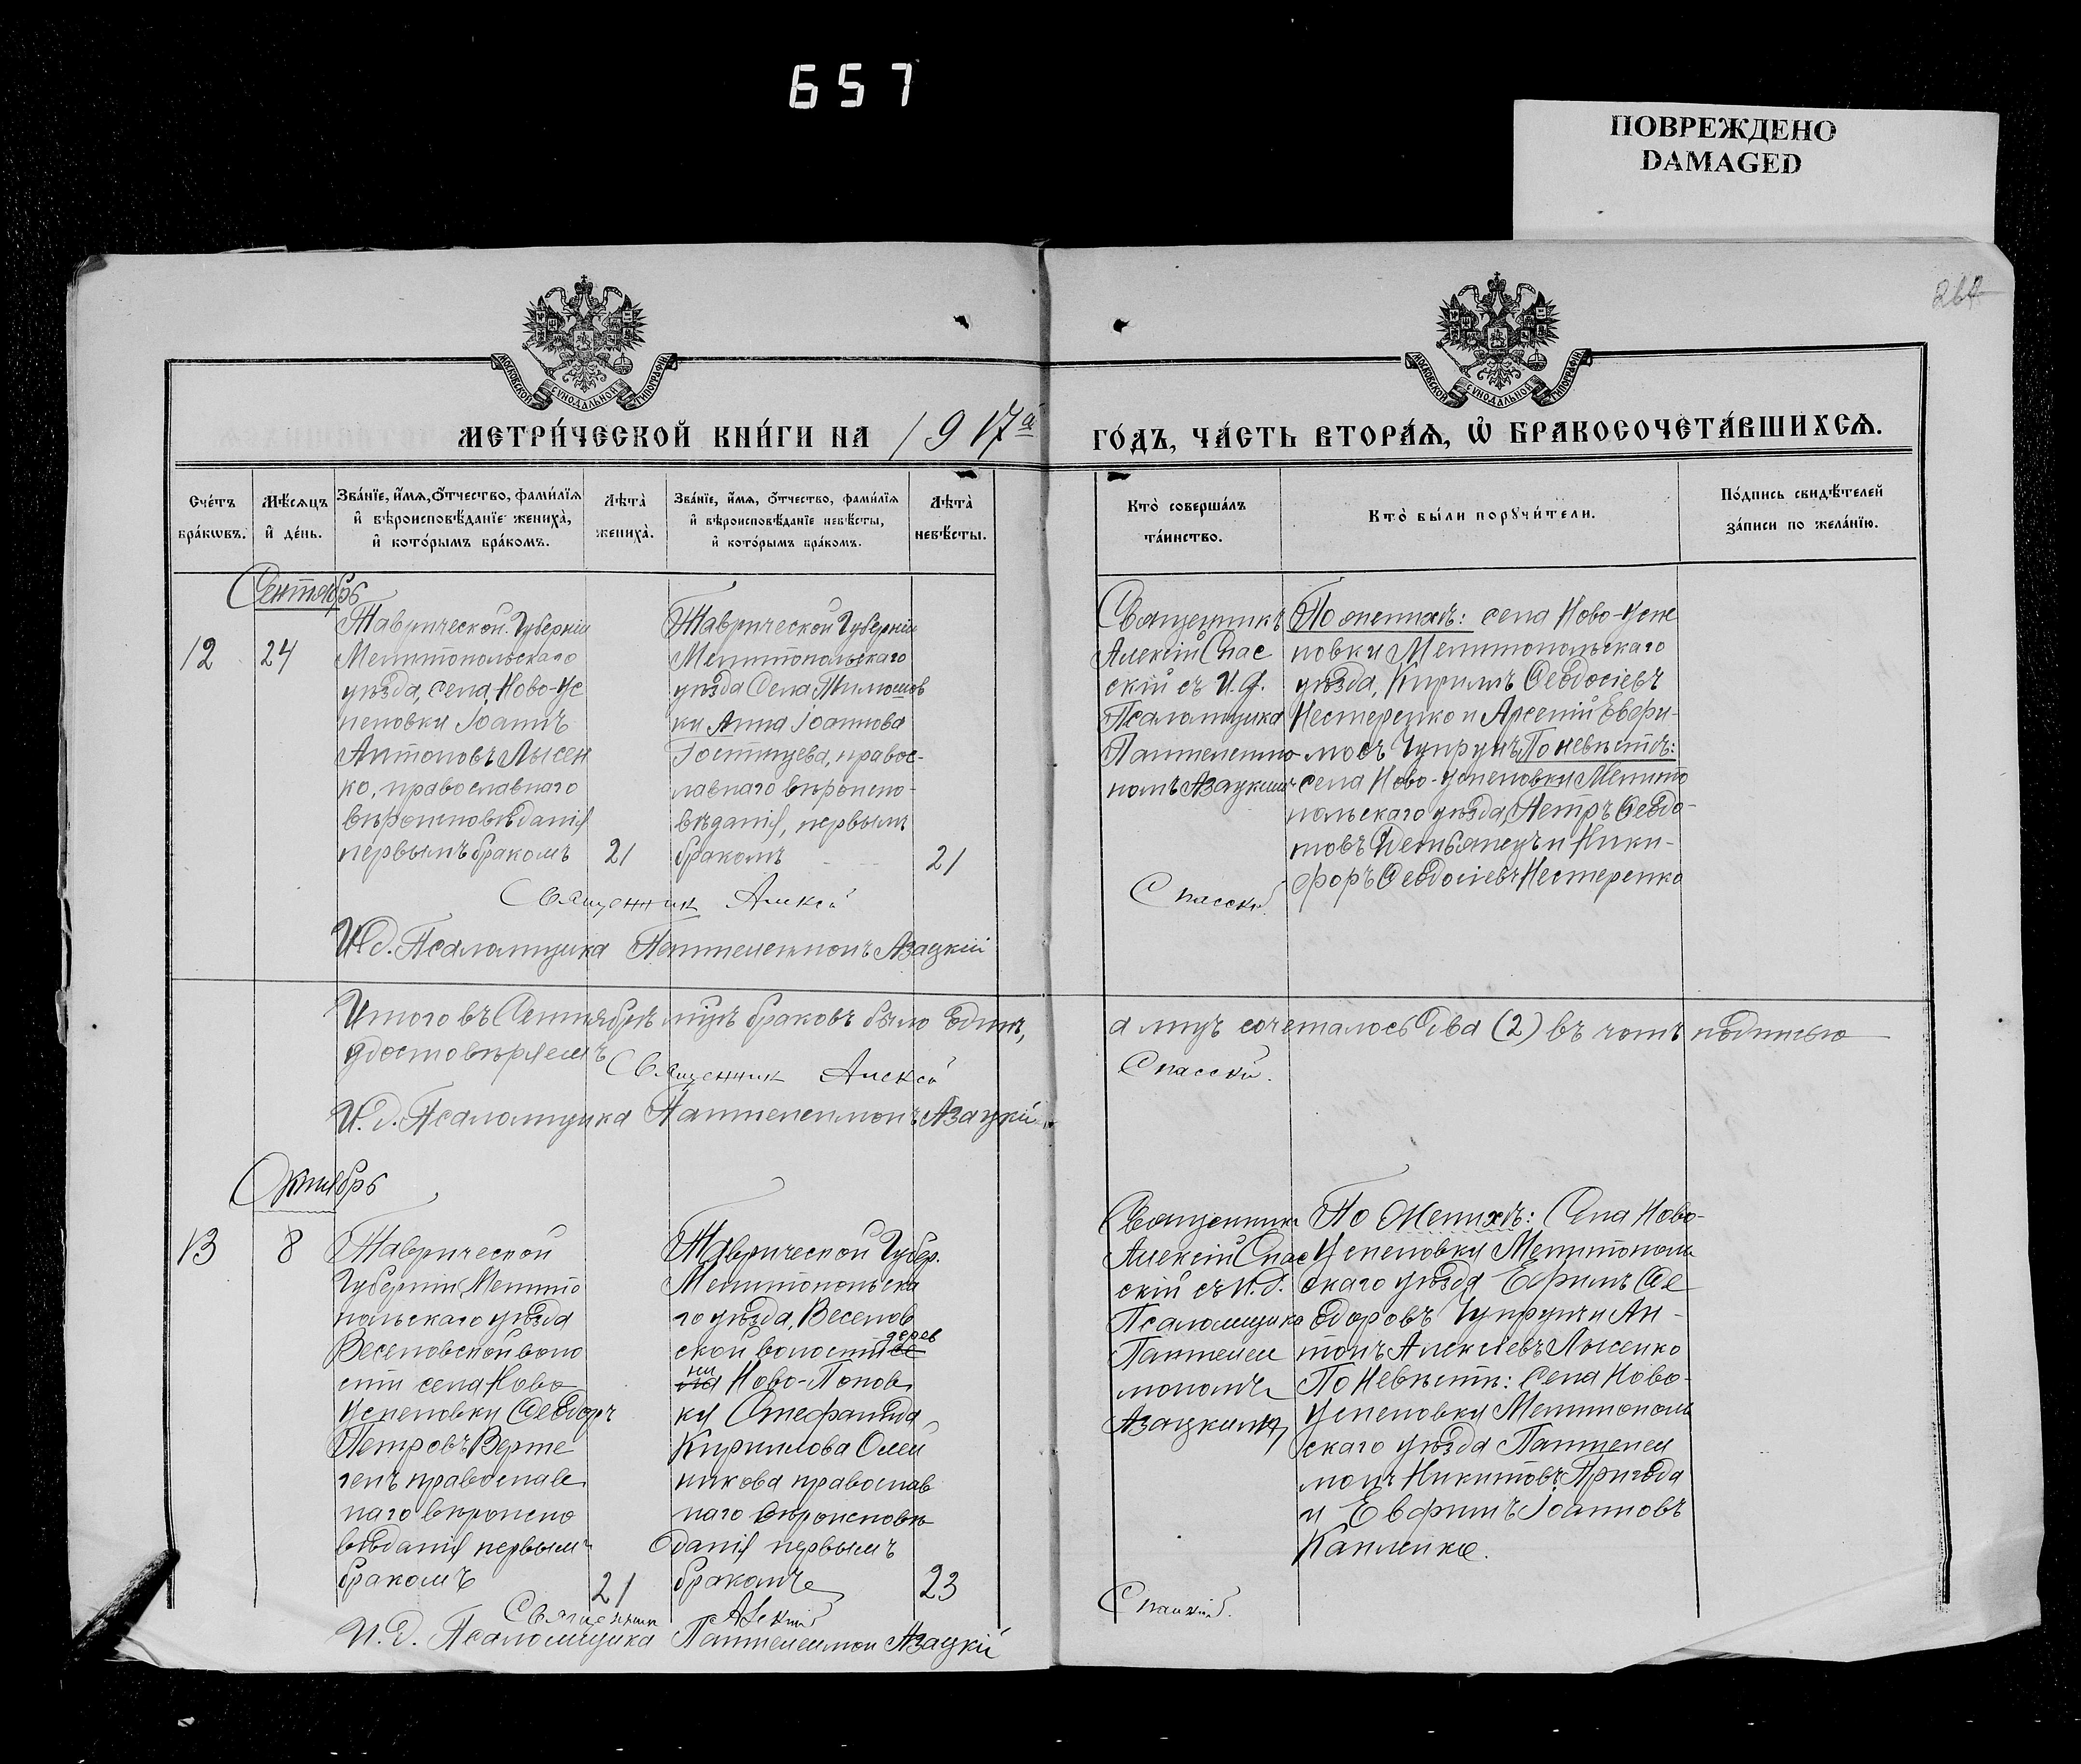 657
ПОВРЕЖДЕНО
DAMAGED
МОСКОВСКОЙ СѴНОДАЛЬНОЙ ТИПОГРАФІИ
МОСКОВСКОЙ СѴНОДАЛЬНОЙ ТИПОГРАФІИ
МЕТРИ́ЧЕСКОЙ КНИ́ГИ НА 1917й
ГО́ДЪ, ЧА́СТЬ ВТОРА́Ѧ, Ѡ҆ БРАКОСОЧЕТА́ВШИХСѦ.
Сче́тъ
бра́кѡвъ.
Мѣ́сяцъ
и҆ де́нь.
Зва́нїе, и҆́мѧ, ѻ҆́тчество, фами́лїѧ
и҆ вѣроисповѣ́данїе жениха̀,
и҆ кото́рымъ бра́комъ.
Лѣта̀
жениха̀.
Зва́нїе, и҆́мѧ, ѻ҆́тчество, фами́лїѧ
и҆ вѣроисповѣ́данїе невѣ́сты,
и҆ кото́рымъ бра́комъ.
Лѣта̀
невѣ́сты.
Кто̀ соверша́лъ
та́инство.
Кто̀ бы́ли порꙋчи́тели.
По́дпись свидѣ́телей
за́писи по жела́нїю.
Сентябрь
12
24
Таврической Губерніи
Мелитопольскаго
уѣзда, села Ново-Ус
пеновки Іоаннъ
Антоновъ Лысен
ко, православнаго
вѣроисповѣданія
первымъ бракомъ
21
Таврической Губерніи
Мелитопольскаго
уѣзда Села Тимошов
ки Анна Іоаннова
Гостищева, правос-
лавнаго вѣроиспо-
вѣданія, первымъ
бракомъ
21
Священникъ
Алексій Спас
скій съ И.д.
Псаломщика
Пантелеимо-
номъ Азацкимъ
По женихѣ: села Ново-Успе
новки Мелитопольскаго
уѣзда, Кириллъ Ѳеодосіевъ
Нестеренко и Арсеній Евфи-
мовъ Чупрунъ, По невѣстѣ:
села Ново-Успеновки Мелито
польскаго уѣзда, Петръ Ѳеодо-
товъ и Ники-
форъ Ѳеодосіевъ Нестеренко
Священник Алексій
Спасскій
И.д. Псаломщика Пантелеимонъ Азацкій
Итого въ Сентябрѣ м-цѣ браковъ было Одинъ,
а лицъ сочеталось Два (2) въ чемъ подписью
удостовѣряемъ
Священник Алексій
Спасскій.
И.д. Псаломщика Пантелеимонъ Азацкій
Октябрь
13
8
Таврической
Губерніи Мелито
польскаго уѣзда
Веселовской воло
сти села Ново
Успеновки Ѳеодоръ
Петровъ Верте
гелъ православ
наго вѣроиспо
вѣданія первымъ
бракомъ
21
Таврической Губер.
Мелитопольска
го уѣзда, Веселов
ской волости дерев
ни Ново-Попов
ки Стефанида
Кириллова Олей
никова православ
наго вѣроисповѣ
данія первымъ
бракомъ
23
Священникъ
Алексій Спас
скій съ И.д.
Псаломщика
Пантелеи
мономъ
Азацкимъ
По Женихѣ: Села Ново-
Успеновки Мелитополь
скаго уѣзда Ефимъ Ѳе
одоровъ Чупрунъ и Ан-
тонъ Алексѣевъ Лысенко
По Невѣстѣ: Села Ново-
Успеновки Мелитополь
скаго уѣзда Пантелеи
монъ Никитовъ Пригода
и Евфимъ Іоанновъ
Капленко.
Священник Алексій
Спасскій.
И.Д. Псаломщика Пантелеимон Азацкій